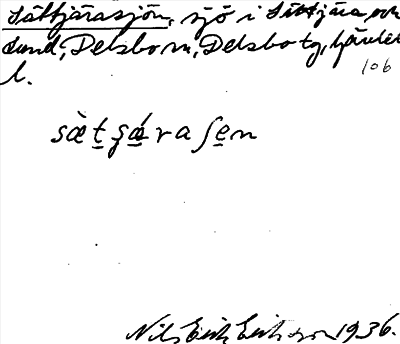 Sättjärasjön, sjö i Sättjära och
Sund, Delsbo sn, Delsbo tg, Gävleb.
l.
106
sæ̀t̠ʂǽ̠raʃe̠n
Nils Erik Eriksson 1936.